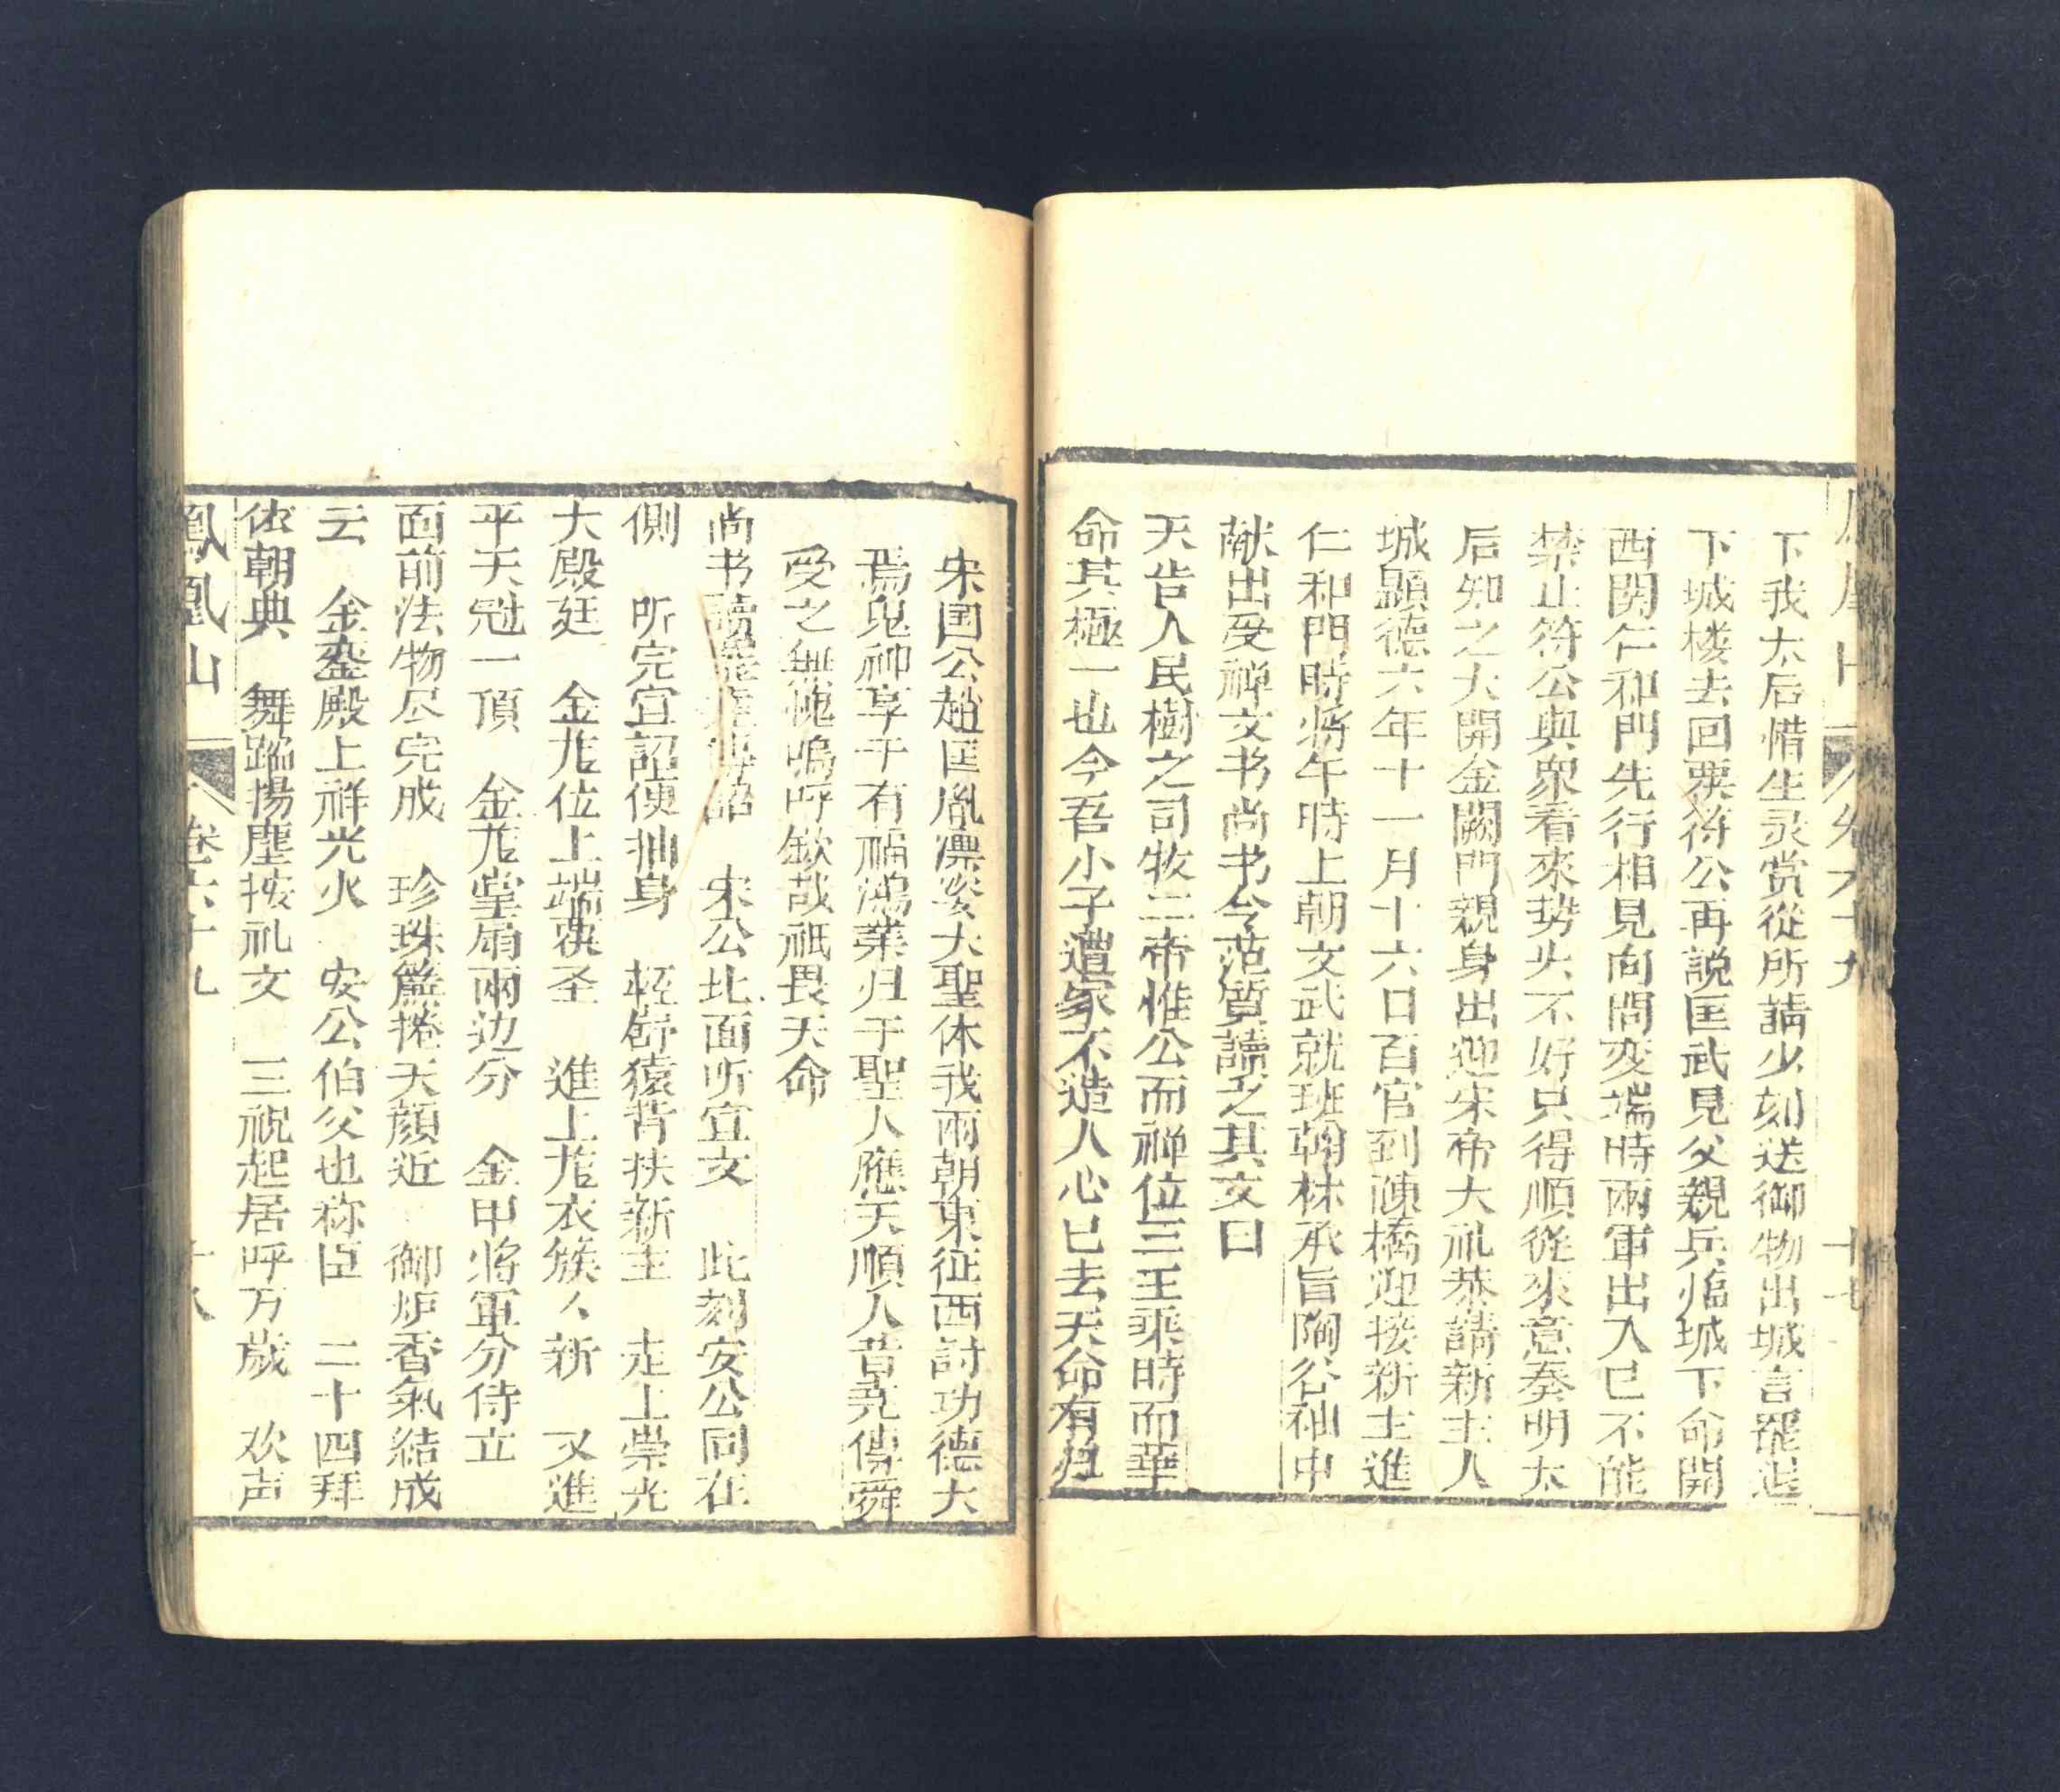 下我太后惜生灵赏從所請少刻送御物出城言罷退
下城楼去回禀符公再説匡武見父親兵临城下命開
西関仁和門先行相見向問変端時兩軍出入已不能
禁止符公與衆看來势头不好只得順從來意奏明太
后知之大開金闕門親身出迎宋帝大礼恭請新主人
城顯德六年十一月十六日百官到陳橋迎接新主進
仁和門時將午時上朝文武就班翰林承旨陶谷袖中
献出受禅文书尚书令范質讀之其文曰
天告人民樹之司牧二帝惟公而禅位三王乘時而華
命其極一也今吾小子遭家不造人心已去天命有归
宋国公趙匡胤凛姿大聖休我兩朝東征西討功德大
焉鬼神享于有福鴻業归于聖人應天順人昔尭傳舜
受之無愧嗚呼欽哉祇畏天命
尚书讀罷 宋公北面听宣文 此刻安公同在
側 听完宣詔便抽身 軽舒猿背扶新主 走上崇光
大殿廷 金龙位上端莫圣 進上龙衣簇々新 又進
平天冠一頂 金龙堂扇兩边分 金甲將軍分侍立
面前法物尽完成 珍珠簾捲天顔近 御炉香氣結成
云 金銮殿上祥光火 安公伯父也称臣 二十四拜
依朝典 舞蹈揚塵按礼文 三祝起居呼万歲 欢声
鳳凰山 卷六十九 十八